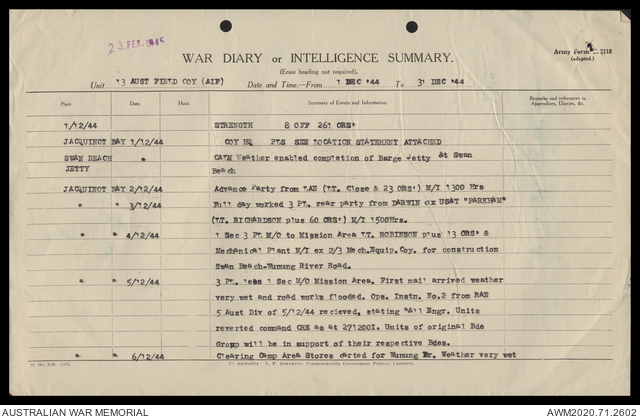 23 FEB 1945
WAR DIARY or INTELLIGENCE SUMMARY.
Army Form C.2118
(adapted.)
(Erase heading not required).
Unit 13 AUST FIELD COY (AIF) Date and Time.—From 1 DEC '44 To 31 DEC '44
Place. Date. Hour. Summary of Events and Information. Remarks and references to Appendices, Diaries, &c.
1/12/44 STRENGTH 8 OFF 261 ORS'
JACQUINOT BAY 1/12/44 COY HQ PLS SEE LOCATION STATEMENT ATTACHED
SWAN BEACH " CALM Weather enabled completion of Barge Jetty at Swan
JETTY Beach
JACQUINOT BAY 2/12/44 Advance Party from LAE (LT. Close & 23 ORS') M/I 1300 Hrs
" " 3/12/44 Full day worked 3 PL. rear party from DARWIN ex USAT "PARKHAM"
(LT. RICHARDSON plus 60 ORS') M/I 1500Hrs.
" " 4/12/44 1 Sec 3 PL M/O to Mission Area LT. ROBINSON plus 13 ORS' &
Mechanical Plant M/I ex 2/3 Mech.Equip.Coy. for construction
Swan Beach-Wunung River Road.
" " 5/12/44 3 PL. less 1 Sec M/O Mission Area. First mail arrived weather
very wet and road works flooded. Ops. Instn. No.2 from RAE
5 Aust Div of 5/12/44 recieved, stating "All Engr. Units
reverted command CRE as at 271200I. Units of original Bde
Group will be in support of their respective Bdes.
" " 6/12/44 Clearing Camp Area Stores carted for Wunung Br. Weather very wet
By Authority: L. F. Johnston, Commonwealth Government Printer, Canberra.
AUSTRALIAN WAR MEMORIAL AWM2020.71.2602